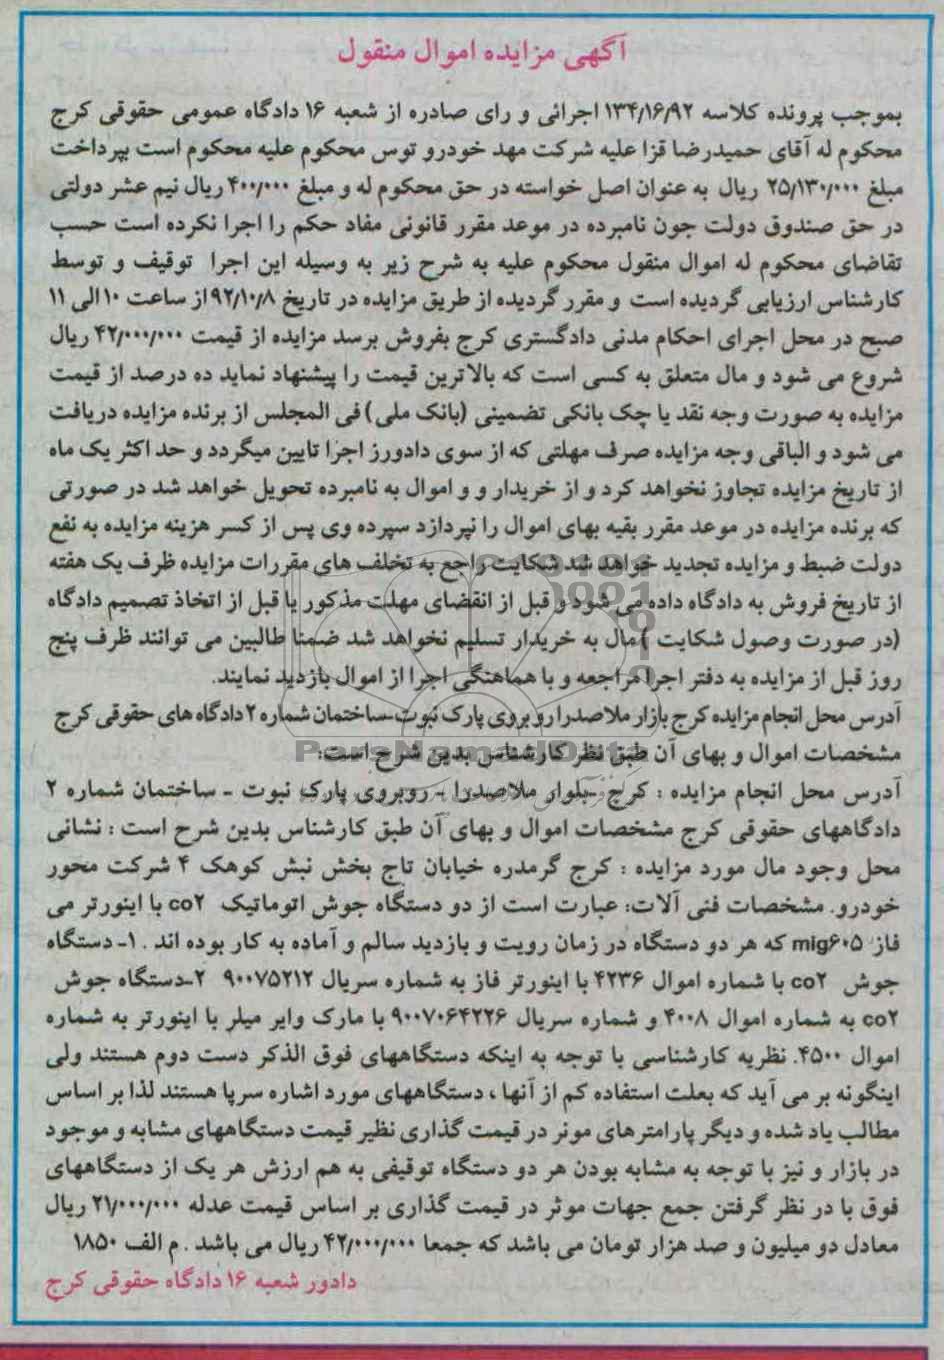 آگهی مزایده اموال منقول
بموجب پرونده کلاسه ۱۳۴/۱۶/۹۲ اجرائی و رای صادره از شعبه ۱۶ دادگاه عمومی حقوقی کرج
محکوم له آقای حمیدرضا قزا علیه شرکت مهد خودرو توس محکوم علیه محکوم است بپرداخت
مبلغ ۲۵/۱۳۰/۰۰۰ ریال به عنوان اصل خواسته در حق محکوم له و مبلغ ۴۰۰/۰۰۰ ریال نیم عشر دولتی
در حق صندوق دولت جون نامبرده در موعد مقرر قانونی مفاد حکم را اجرا نکرده است حسب
تقاضای محکوم له اموال منقول محکوم علیه به شرح زیر به وسیله این اجرا توقیف و توسط
کارشناس ارزیابی گردیده است و مقرر گردیده از طریق مزایده در تاریخ ۹۲/۱۰/۸ از ساعت ۱۰ الی ۱۱
صبح در محل اجرای احکام مدنی دادگستری کرج بفروش برسد مزایده از قیمت ۴۲/۰۰۰/۰۰۰ ریال
شروع می شود و مال متعلق به کسی است که بالاترین قیمت را پیشنهاد نماید ده درصد از قیمت
مزایده به صورت وجه نقد یا چک بانکی تضمینی (بانک ملی) فی المجلس از برنده مزایده دریافت
می شود و الباقی وجه مزایده صرف مهلتی که از سوی دادورز اجرا تایین میگردد و حد اکثر یک ماه
از تاریخ مزایده تجاوز نخواهد کرد و از خریدار و و اموال به نامبرده تحویل خواهد شد در صورتی
که برنده مزایده در موعد مقرر بقیه بهای اموال را نپردازد سپرده وی پس از کسر هزینه مزایده به نفع
دولت ضبط و مزایده تجدید خواهد شد شکایت راجع به تخلف های مقررات مزایده ظرف یک هفته
از تاریخ فروش به دادگاه داده می شود و قبل از انقضای مهلت مذکور یا قبل از اتخاذ تصمیم دادگاه
(در صورت وصول شکایت ) مال به خریدار تسلیم نخواهد شد ضمنا طالبین می توانند ظرف پنج
روز قبل از مزایده به دفتر اجرا مراجعه و با هماهنگی اجرا از اموال بازدید نمایند.
آدرس محل انجام مزایده کرج بازار ملاصدرا روبروی پارک نبوت-ساختمان شماره ۲ دادگاه های حقوقی کرج
مشخصات اموال و بهای آن طبق نظر کارشناس بدین شرح است:
ParsNamadData
آدرس محل انجام مزایده : کرج -بلوار ملاصدرا - روبروی پارک نبوت - ساختمان شماره ۲
دادگاههای حقوقی کرج مشخصات اموال و بهای آن طبق کارشناس بدین شرح است : نشانی
محل وجود مال مورد مزایده : کرج گرمدره خیابان تاج بخش نبش کوهک ۴ شرکت محور
خودرو. مشخصات فنی آلات: عبارت است از دو دستگاه جوش اتوماتیک co۲ با اینورتر می
فاز mig۶۰۵ که هر دو دستگاه در زمان رویت و بازدید سالم و آماده به کار بوده اند . ۱- دستگاه
جوش co۲ با شماره اموال ۴۲۳۶ با اینورتر فاز به شماره سریال ۹۰۰۷۵۲۱۲ ۲-دستگاه جوش
co۲ به شماره اموال ۴۰۰۸ و شماره سریال ۹۰۰۷۰۶۴۲۲۶ با مارک وایر میلر با اینورتر به شماره
اموال ۴۵۰۰. نظریه کارشناسی با توجه به اینکه دستگاههای فوق الذکر دست دوم هستند ولی
اینگونه بر می آید که بعلت استفاده کم از آنها ، دستگاههای مورد اشاره سرپا هستند لذا بر اساس
مطالب یاد شده و دیگر پارامترهای مونر در قیمت گذاری نظیر قیمت دستگاههای مشابه و موجود
در بازار و نیز با توجه به مشابه بودن هر دو دستگاه توقیفی به هم ارزش هر یک از دستگاههای
فوق با در نظر گرفتن جمع جهات موثر در قیمت گذاری بر اساس قیمت عدله ۲۱/۰۰۰/۰۰۰ ریال
معادل دو میلیون و صد هزار تومان می باشد که جمعا ۴۲/۰۰۰/۰۰۰ ریال می باشد . م الف ۱۸۵۰
دادور شعبه ۱۶ دادگاه حقوقی کرج